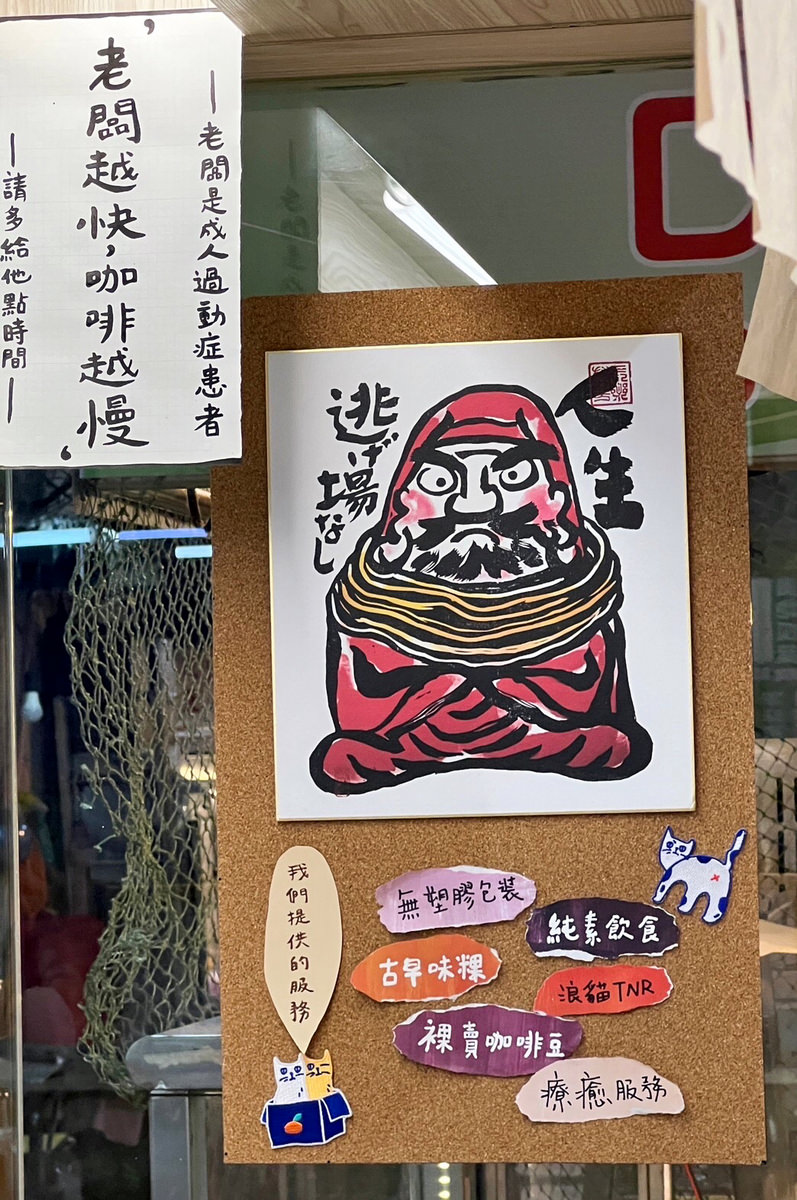 —老闆是成人過動症患者
老闆越快，咖啡越慢。
—請多給他點時間—
人生
逃げ場なし
我們提供的服務
無塑膠包裝
純素飲食
古早味粿
浪貓TNR
裸賣咖啡豆
療癒服務